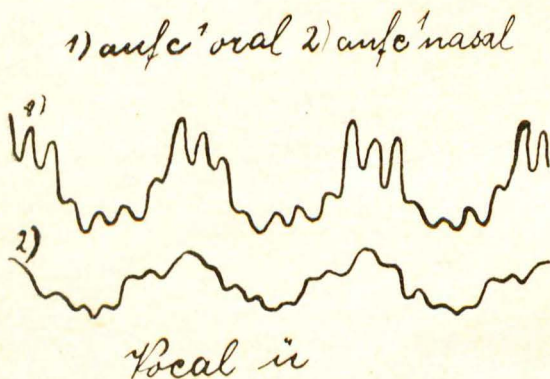 1) auf c¹ oral 2) auf c¹ nasal
1)
2)
Vocal ü